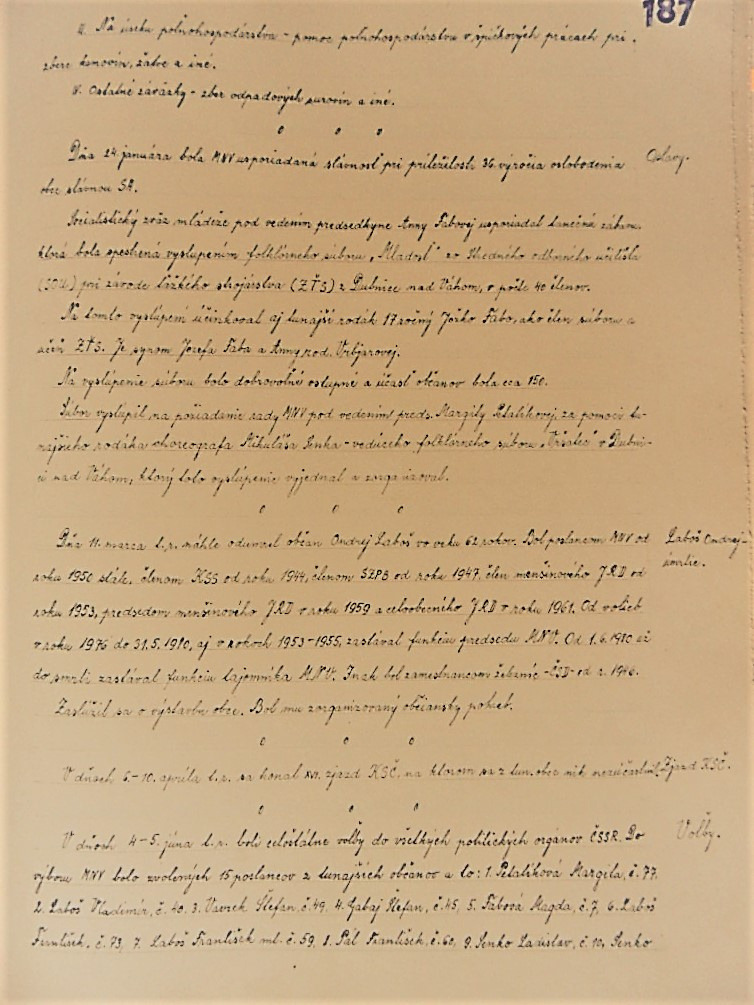 187
III. Na úseku poľnohospodárstva - pomoc poľnohospodárstvu v špičkových prácach pri
zbere krmovín, žatve a iné.
IV. Ostatné záväzky - zber odpadových surovín a iné.
Dňa 24. januára bola MNV usporiadaná slávnosť pri príležitosti 36. výročia oslobodenia
Oslavy.
obce slávnou SA.
Socialistický zväz mládeže pod vedením predsedkyne Anny Fabovej usporiadal tanečnú zábavu,
ktorá bola spestrená vystúpením folklórneho súboru "Mladosť" zo Stredného odborného učilišťa
(SOU) pri závode ťažkého strojárstva (ZŤS) z Dubnice nad Váhom, v počte 40 členov.
Na tomto vystúpení účinkoval aj tunajší rodák 17 ročný Jožko Fabo, ako člen súboru a
učeň ZŤS. Je synom Jozefa Faba a Anny, rod. Vrbjarovej.
Na vystúpenie súboru bolo dobrovoľné vstupné a účasť občanov bola cca 150.
Súbor vystúpil na požiadanie rady MNV pod vedením preds. Margity Petalíkovej, za pomoci tu-
najšieho rodáka choreografa Mikuláša Senka - vedúceho folklórneho súboru "Vršatec" v Dubni-
ci nad Váhom, ktorý toto vystúpenie vyjednal a zorganizoval.
Dňa 11. marca t. r. náhle odumrel občan Ondrej Laboš vo veku 62 rokov. Bol poslancom MNV od
Laboš Ondrej -
úmrtie.
roku 1950 stále, členom KSS od roku 1944, členom SZPB od roku 1947, člen menšinového JRD od
roku 1953, predsedom menšinového JRD v roku 1959 a celoobecného JRD v roku 1961. Od volieb
v roku 1976 do 31.5.1980, aj v rokoch 1953-1955, zastával funkciu predsedu MNV. Od 1.6.1980 až
do smrti zastával funkciu tajomníka MNV. Inak bol zamestnancom železníc - ČSD - od r. 1946.
Zaslúžil sa o výstavbu obce. Bol mu zorganizovaný občiansky pohreb.
V dňoch 6.-10. apríla t. r. sa konal XVI. zjazd KSČ, na ktorom sa z tun. obce nik nezúčastnil.
Zjazd KSČ.
V dňoch 4-5. júna t. r. boli celoštátne voľby do všetkých politických orgánov ČSSR. Do
Voľby.
výboru MNV bolo zvolených 15 poslancov z tunajších občanov a to: 1. Petalíková Margita, č. 77,
2. Laboš Vladimír, č. 40, 3. Vavrek Štefan, č. 49, 4. Gabaj Štefan, č. 45, 5. Fabová Magda, č. 7, 6. Laboš
František, č. 73, 7. Laboš František ml. č. 59, 8. Pál František, č. 60, 9. Senko Ladislav, č. 10, Senko